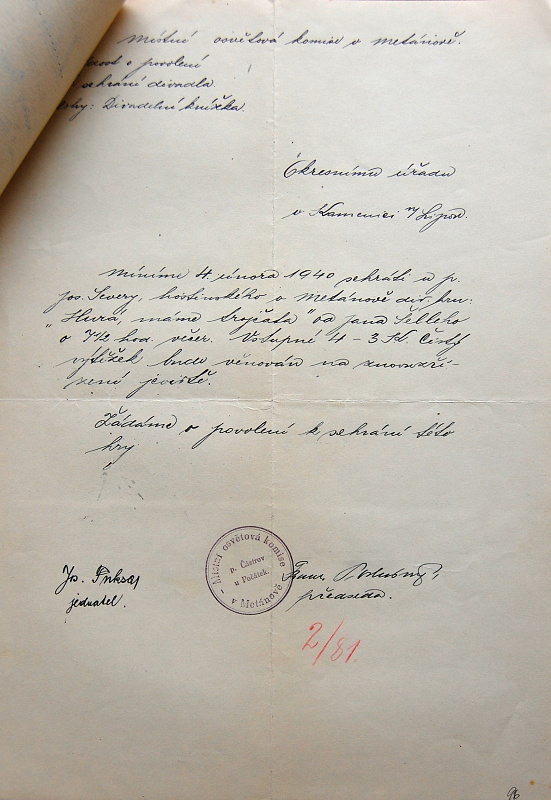 Místní osvětová komise v Metánově.
o povolení
sehrání divadla.
Divadelní knížka.
Okresnímu úřadu
v Kamenici n/Lipou.
Míníme 4. února 1940 sehráti u p.
Jos. Severy, hostinského v Metánově div. hru:
"Hurá, máme trojčata" od Jana
o 7½ hod. večer. Vstupné 4 - 3 K. Čistý
výtěžek bude věnován na znovuzří-
zení jeviště.
Žádáme o povolení k sehrání této
hry
Místní osvětová komise
p. Částrov
u Počátek.
v Metánově
Jos.
jednatel.
předseda.
2/81.
96